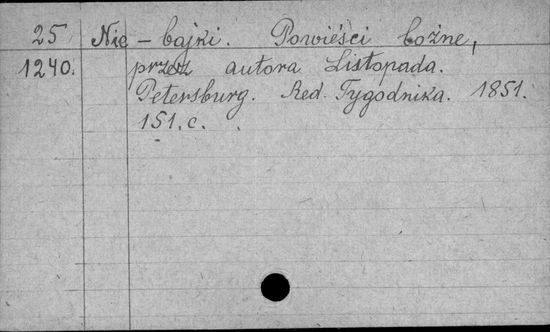 25 Nie - bajki. Powieści bożne,
1240. przez autora Listopada.
Petersburg. Red. Tygodnika. 1851.
151. c.